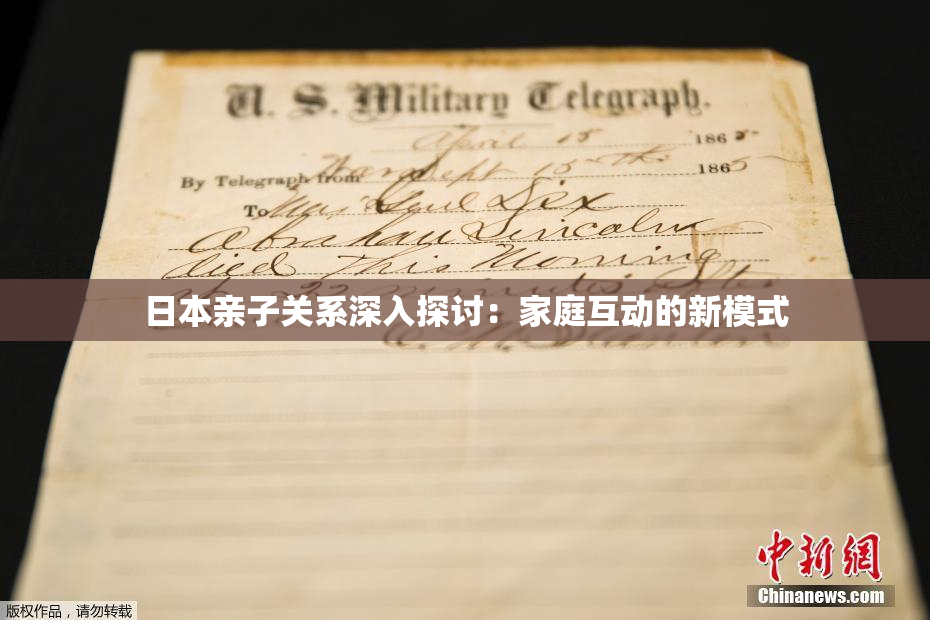 U. S. Military Telegraph.
April 15 1865
By Telegraph from War Dept 15th 1865
To Maj Genl Dix
Abraham Lincoln
died This Morning
at 22 minutes after
日本亲子关系深入探讨：家庭互动的新模式
E. M. Stanton
中新網
Chinanews.com
版权作品，请勿转载